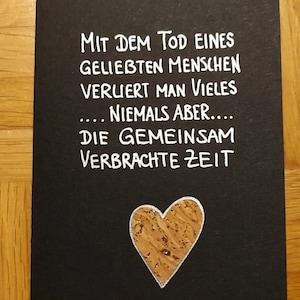 MIT DEM TOD EINES
GELIEBTEN MENSCHEN
VERLIERT MAN VIELES
.... NIEMALS ABER....
DIE GEMEINSAM
VERBRACHTE ZEIT